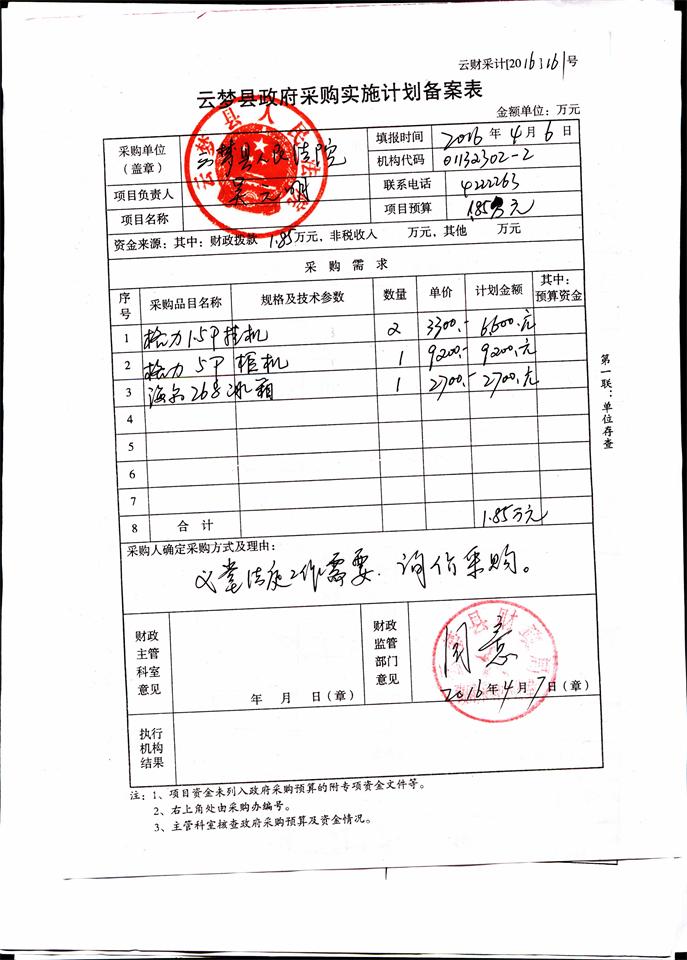 云财采计[2016]161号
云梦县政府采购实施计划备案表
金额单位：万元
采购单位（盖章） 云梦县人民法院 填报时间 2016年4月6日
机构代码 01132302-2
项目负责人 联系电话 4222263
项目名称 项目预算 1.85万元
资金来源：其中：财政拨款 1.85万元，非税收入 万元，其他 万元
采购需求
序号 采购品目名称 规格及技术参数 数量 单价 计划金额 其中：预算资金
1 格力1.5P挂机 2 3300.- 6600.元
2 格力5P柜机 1 9200.- 9200.元
3 海尔268冰箱 1 2700.- 2700.元
4
5
6
7
8 合计 1.85万元
采购人确定采购方式及理由：
义堂法庭工作需要．询价采购。
财政主管科室意见 年 月 日（章） 财政监管部门意见 同意 2016年4月7日（章）
执行机构结果
注：1、项目资金未列入政府采购预算的附专项资金文件等。
2、右上角处由采购办编号。
3、主管科室核查政府采购预算及资金情况。
第一联：单位存查